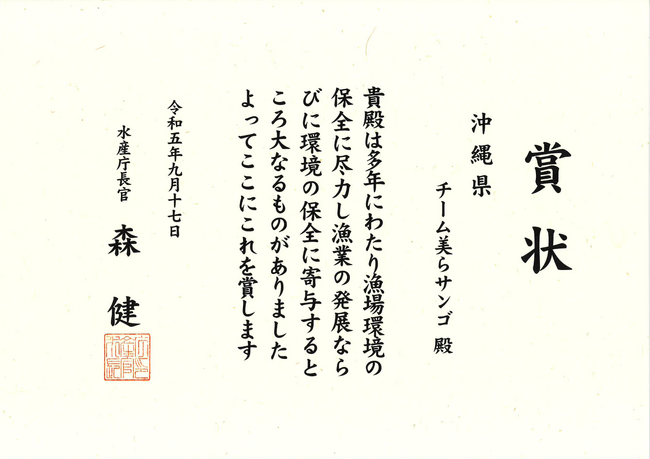 賞状
沖縄県
チーム美らサンゴ 殿
貴殿は多年にわたり漁場環境の
保全に尽力し漁業の発展なら
びに環境の保全に寄与すると
ころ大なるものがありました
よってここにこれを賞します
令和五年九月十七日
水産庁長官 森 健